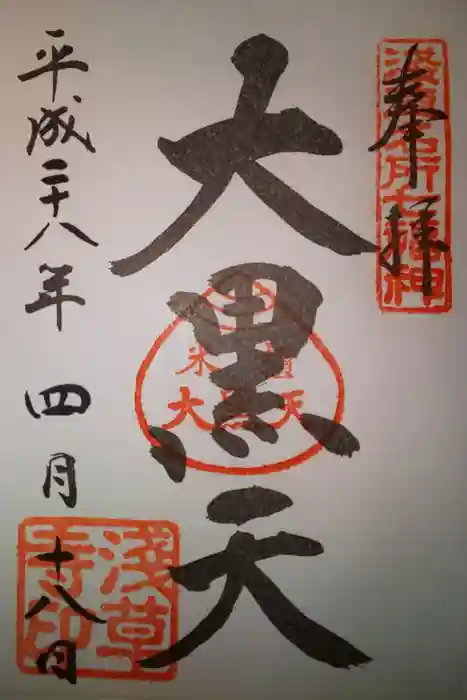 奉拝
浅草名所七福神
大黒天
米頂大黒天
平成二十八年 四月 十八日
浅草寺印